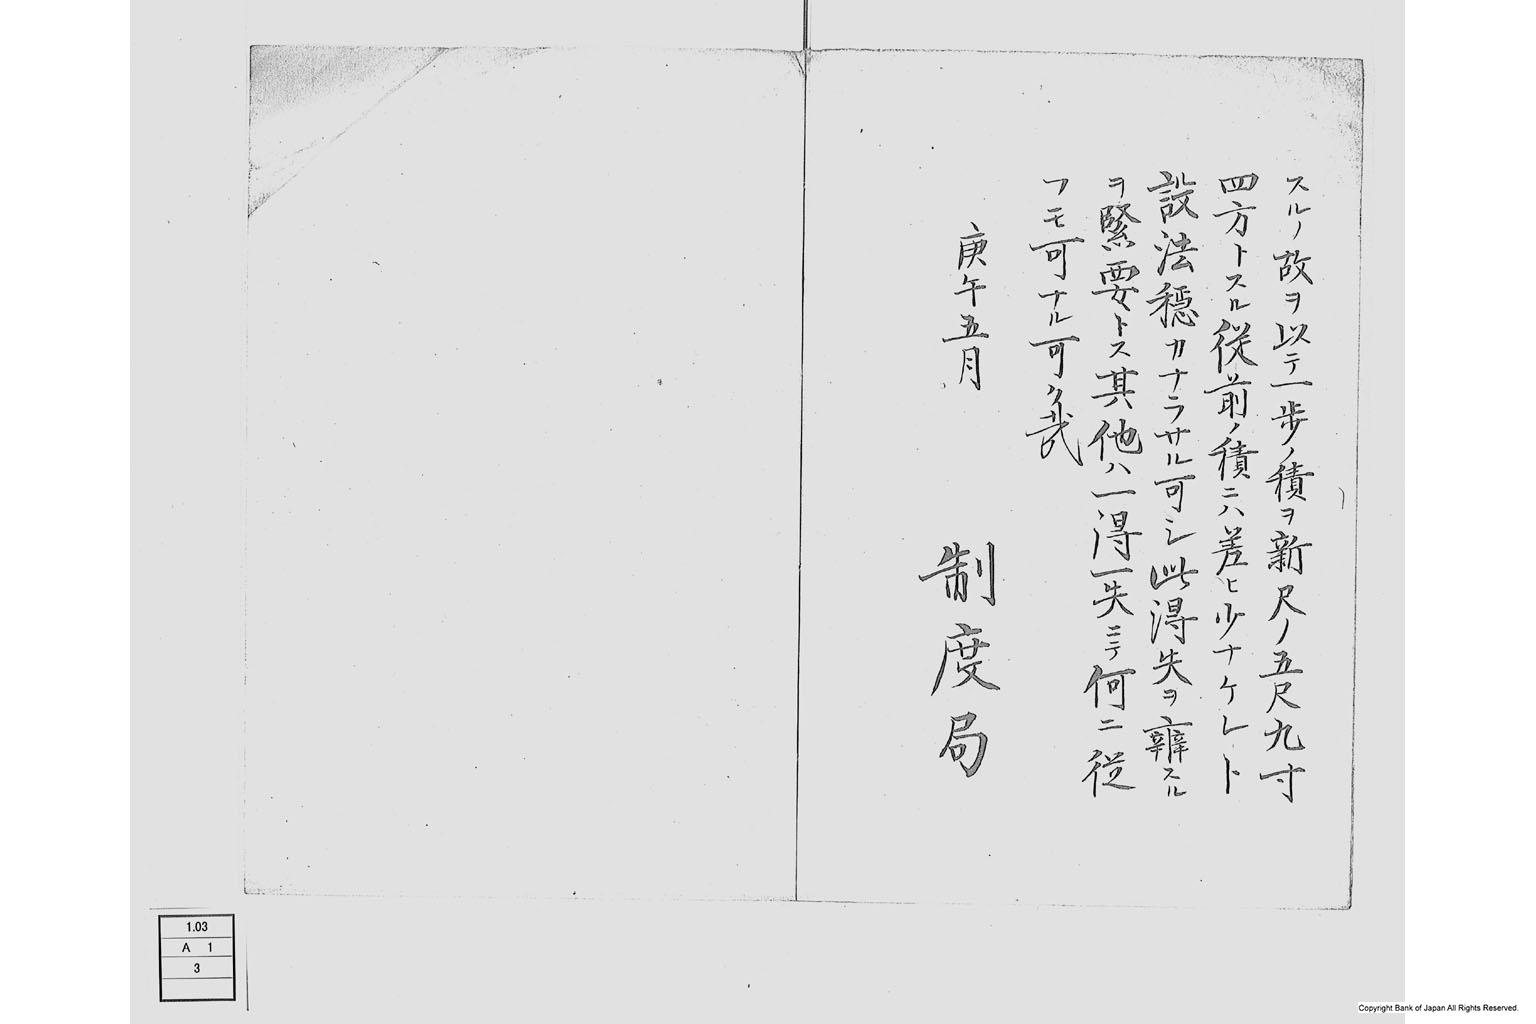 スルノ故ヲ以テ一歩ノ積ヲ新尺ノ五尺九寸
四方トスル従前ノ積ニハ差ヒ少ナケレト
設法穏カナラサル可シ此得失ヲ辨スル
ヲ緊要トス其他ハ一得一失ニテ何ニ従
フモ可ナル可ク哉
庚午五月
制度局
1.03
A 1
3
Copyright Bank of Japan All Rights Reserved.